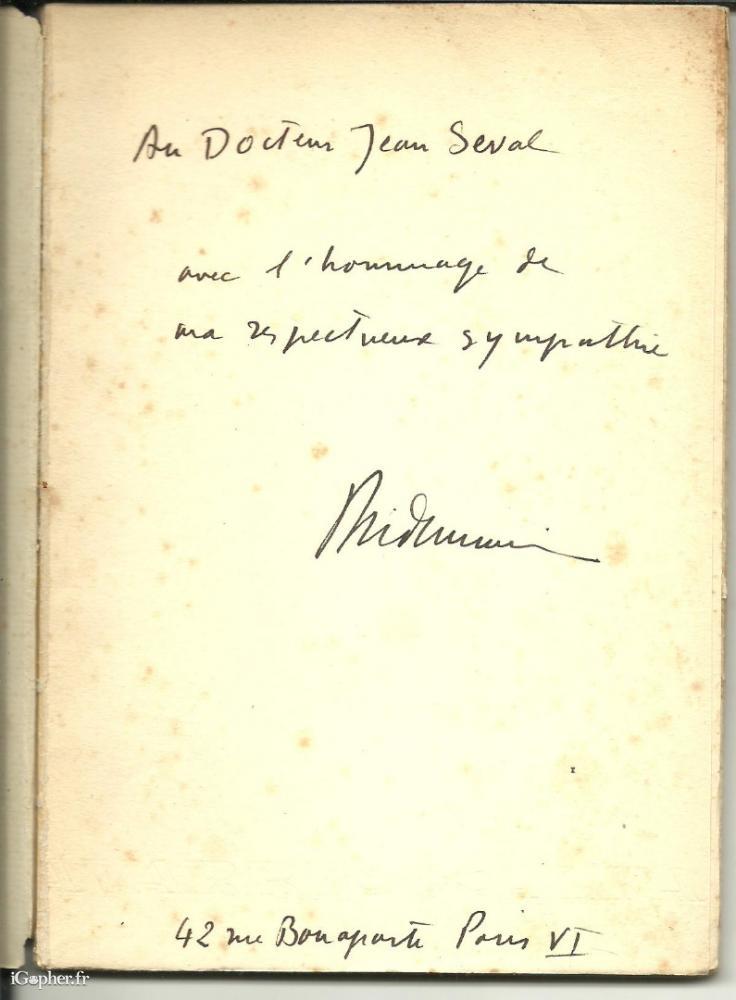 Au Docteur Jean Serval
avec l'hommage de
ma respectueux sympathie
42 rue Bonaparte Paris VI
iGopher.fr